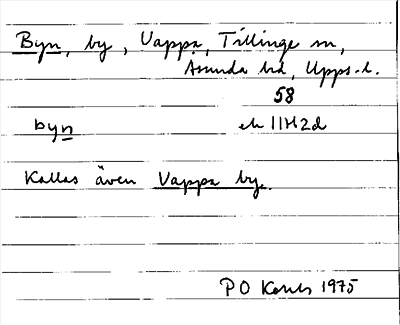 Byn, by, Vappa, Tillinge sn,
Åsunda hd, Upps. l.
58
byn ek 11H2d
Kallas även Vappa by.
P O 1975